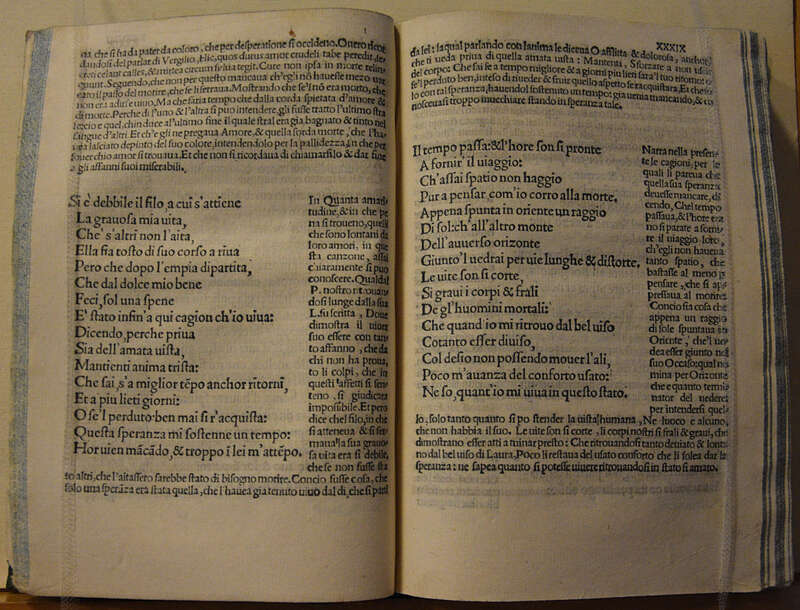 che si ha da pater da coloro, che per desperatione si occideno. Overo ricor
dandosi del parlar di Vergilio, Hic, quos durus amor crudeli tabe peredit, se
creti celant calles, & mirtea circum silua tegit. Cure non ipsa in morte relin
quunt. Seguendo, che non per questo mancaua ch'egli nō hauesse mezo uar
cato il passo del morire, che se li serraua. Mostrando che se'l nō era morto, che
non era adusse uiuo, Ma che saria tempo che dalla corda spietata d'amore &
di morte. Perche di l'uno & l'altra si puo intendere, gli fusse tratto l'ultimo stra
le, cio e quel, ch'in dace al'ultimo fine il quale stral era gia bagnato & tinto nel
sangue d'altri Et ch'e gli ne pregaua Amore, & quella sorda morte, che l'ha
uea lasciato depinto del suo colore, intendendolo per la pallidezza, in che per
souerchio amor si trouaua. Et che non si ricordaua di chiamarsilo & dar fine
gli affanni suoi miserabili.
Si è debbile il filo, a cui s'attiene
La grauosa mia uita,
Che' s'altri non l'aita,
Ella fia tosto di suo corso a riua
Pero che dopo l'empia dipartita,
Che dal dolce mio bene
Feci, sol una spene
E' stato infin'a qui cagion ch'io uiua:
Dicendo, perche priua
Sia dell'amata uista,
Mantienti anima trista:
Che sai, s'a miglior tēpo anchor ritorni,
Et a piu lieti giorni:
O se'l perduto ben mai si r'acquista:
Questa speranza mi sostenne un tempo:
Hor uien mācādo, & troppo ī lei m'attēpo.
In Quanta amari
tudine, & in che pe
na si troueno, quelli
che sono lontani da
loro amori, in que
sta canzone, assai
chiaramente si puo
conoscere. Qualdil
P. nostro ritrouan
dosi lunge dalla sua
L. su scritta, Doue
dimostra il uiuer
suo essere con tan
to affanno, che da
chi non ha proua
to li colpi, che in
questi affetti si sen
teno, si giudicara
impossibile. Et pero
dice chel filo, in che
si atteneua & si fer
maua la sua grauo
sa uita era si debile,
che se non fusse sta
to altri, che l'aitasse to farebbe stato di bisogno morire. Concio fusse cosa, che
solo una sperāza era stata quella, che l'hauea gia tenuto uiuo dal di, che si parti
XXXIX
da lei: la qual parlando con lanima le diceua O afflitta & dolorosa, anchor
che ti ueda priua di quella amata uista: Mantienti, Sforzate a non usir
del corpo: Che sai se a tempo migliore & a giorni piu lieti sara'l tuo ritorno: o
se'l perduto ben, inteso di riueder & fruir quello aspetto se racquistara, Et che so
lo con tal speranza, hauendol sostenuto un tempo: gia ueniua mancando, & co
noscea si troppo inuechiare stando in speranza tale.
Il tempo passa: & l'hore son si pronte
A fornir' il uiaggio:
Ch'assai spatio non haggio
Pur a pensar com'io corro alla morte.
Appena spunta in oriente un raggio
Di sol: ch'all'altro monte
Dell'auuerso orizonte
Giunto'l uedrai per uie lunghe & distorte.
Le uite son si corte,
Si graui i corpi & frali
De gl'huomini mortali:
Che quand'io mi ritrouo dal bel uiso
Cotanto esser diuiso,
Col desio non possendo mouer l'ali,
Poco m'auanza del conforto usato:
Ne so, quant'io mi uiua in questo stato.
Narra nella presen
te le cagioni, per le
quali li pareua che
quella sua speranza
deuesse mancare, di
cendo, Chel tempo
passaua, & l'hore era
no si parate a forni
re il uiaggio loro,
ch'egli non hauena
tanto spatio, che
bastasse al meno p
pensare, che si ap
pressaua al morire
Concio sia cosa che
appena un raggio
di sole spuntaua in
Oriente, che'l uo
dea esser giunto nel
suo Occaso: qual no
mina per Orizonte
che e quanto termi
nator del uedere:
per intendersi quel
lo, solo tanto quanto si po stender la uista humana, Ne luoco e alcuno,
che non habbia il suo. Le uite son si corte, li corpi nostri si frali & graui, che
dimostrano esser atti a ruinar presto: Che ritrouandosi tanto deuiato & lonta
no dal bel uiso di Laura, Poco li restaua del usato conforto che li solea dar la
speranza: ne sapea quanto si potesse uiuere ritrouandosi in stato si amaro.